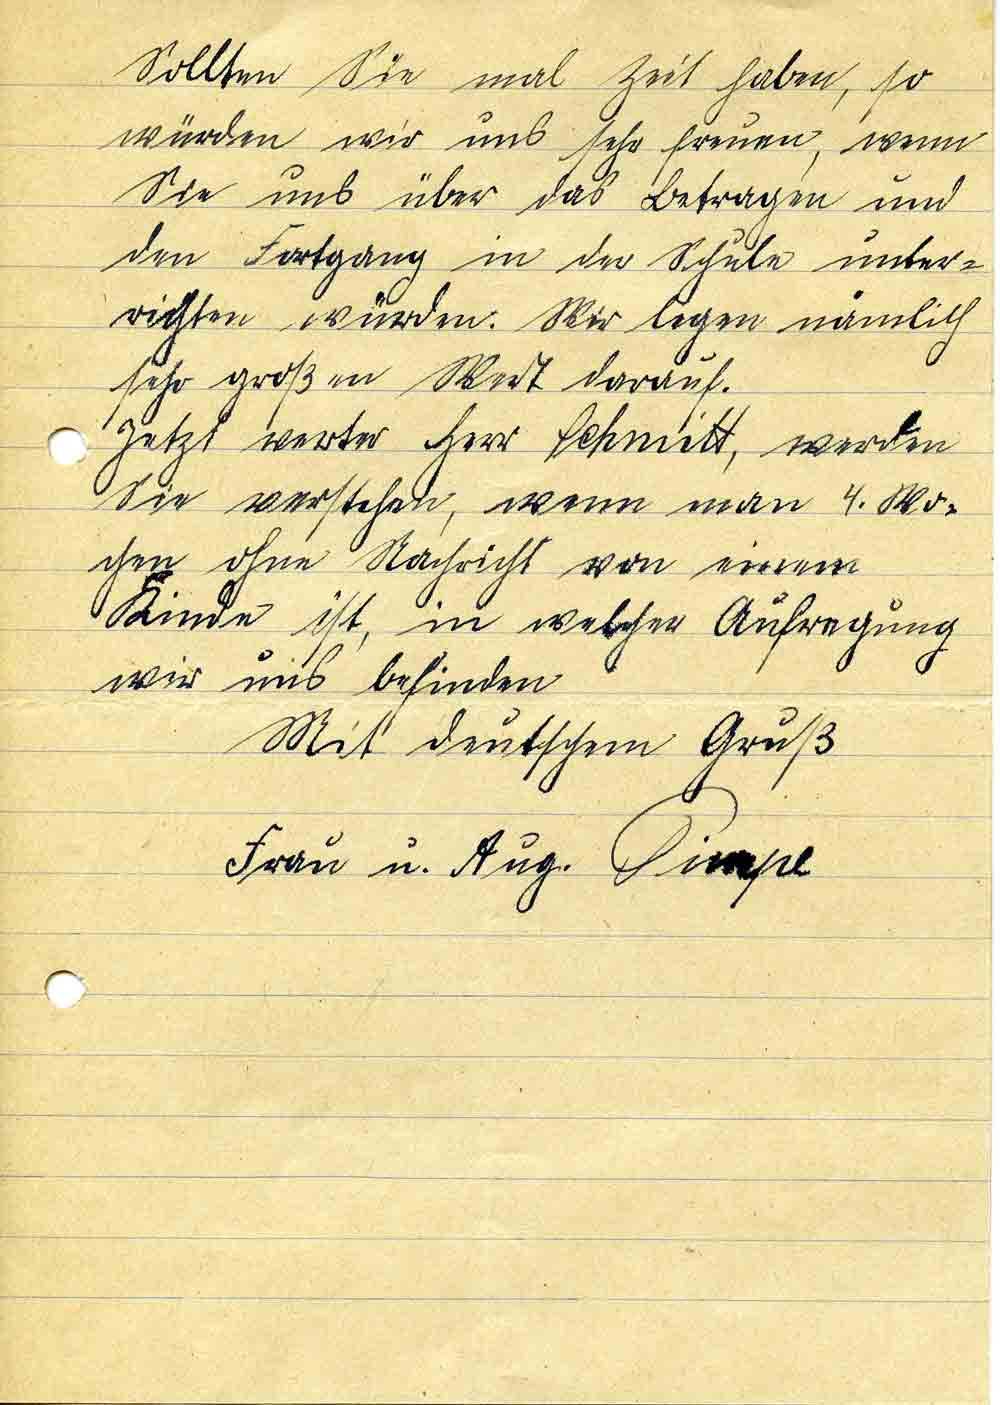 Sollten Sie mal Zeit haben, so
würden wir uns sehr freuen, wenn
Sie uns über das Betragen und
den Fortgang in der Schule unter-
richten würden. Wir legen nämlich
sehr großen Wert darauf.
Jetzt werter Herr Schmitt, werden
Sie verstehen, wenn man 4. Wo-
chen ohne Nachricht von einem
Kinde ist, in welcher Aufregung
wir uns befinden
Mit deutschem Gruß
Frau u. Aug.